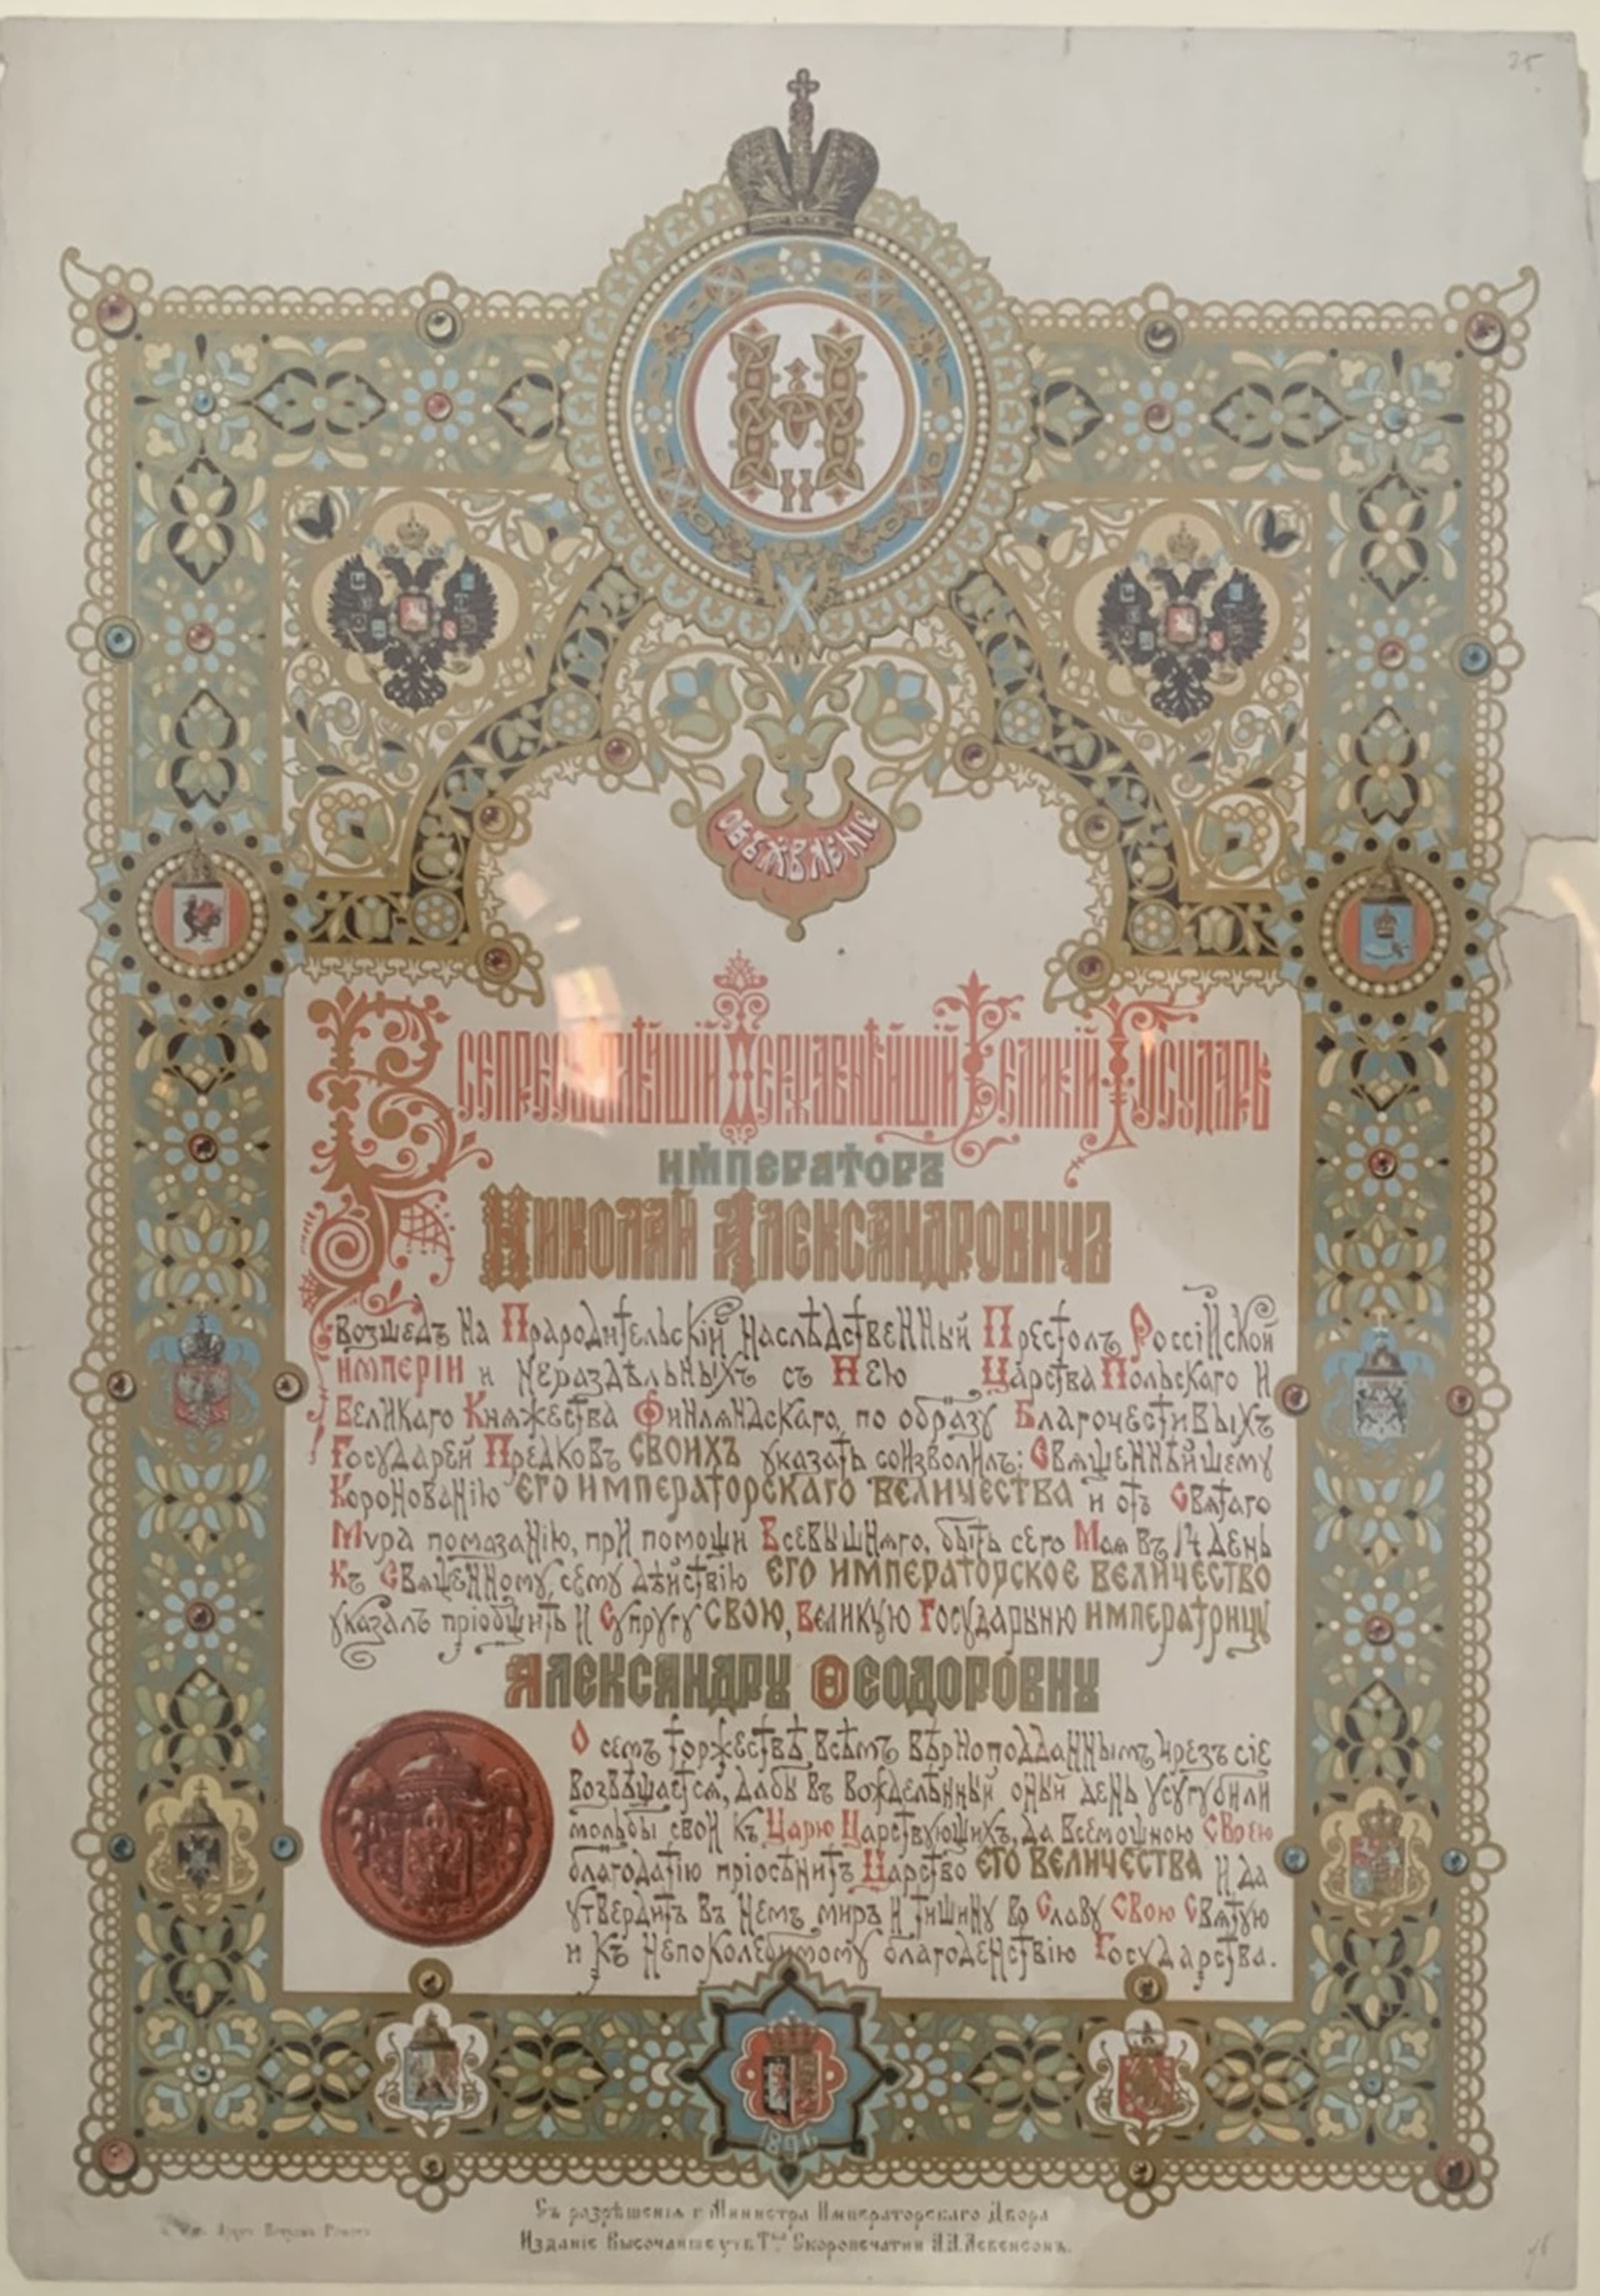 25
Н
II
ОБЪЯВЛЕНІЕ
ВСЕПРЕСВѢТЛѢЙШІЙ ДЕРЖАВНѢЙШІЙ ВЕЛИКІЙ ГОСУДАРЬ
ИМПЕРАТОРЪ
НИКОЛАЙ АЛЕКСАНДРОВИЧЪ
возшедъ на Прародительскій Наслѣдственный Престолъ Россійской
ИМПЕРІИ и нераздѣльныхъ съ Нею Царства Польскаго и
Великаго Княжества Финляндскаго, по образу Благочестивыхъ
Государей Предковъ СВОИХЪ указать соизволилъ: Священнѣйшему
Коронованію ЕГО ИМПЕРАТОРСКАГО ВЕЛИЧЕСТВА и отъ Святаго
Мѵра помазанію, при помощи Всевышняго, быть сего Мая въ 14 день
Къ Священному сему дѣйствію ЕГО ИМПЕРАТОРСКОЕ ВЕЛИЧЕСТВО
указалъ пріобщить и Супругу СВОЮ, Великую Государыню ИМПЕРАТРИЦУ
АЛЕКСАНДРУ ѲЕОДОРОВНУ
О семъ торжествѣ всѣмъ вѣрноподданнымъ чрезъ сіе
возвѣщается, дабы въ вождѣленный оный день усугубили
мольбы свои къ Царю Царствующихъ, да всемощною СВОЕЮ
благодатію пріосѣнитъ Царство ЕГО ВЕЛИЧЕСТВА и да
утвердитъ въ немъ миръ и тишину во Славу СВОЮ Святую
и къ непоколебимому благоденствію Государства.
1896
Съ разрѣшенія г. Министра Императорскаго Двора
Изданіе Высочайше утв. Т-ва Скоропечатни А.А. Левенсонъ.